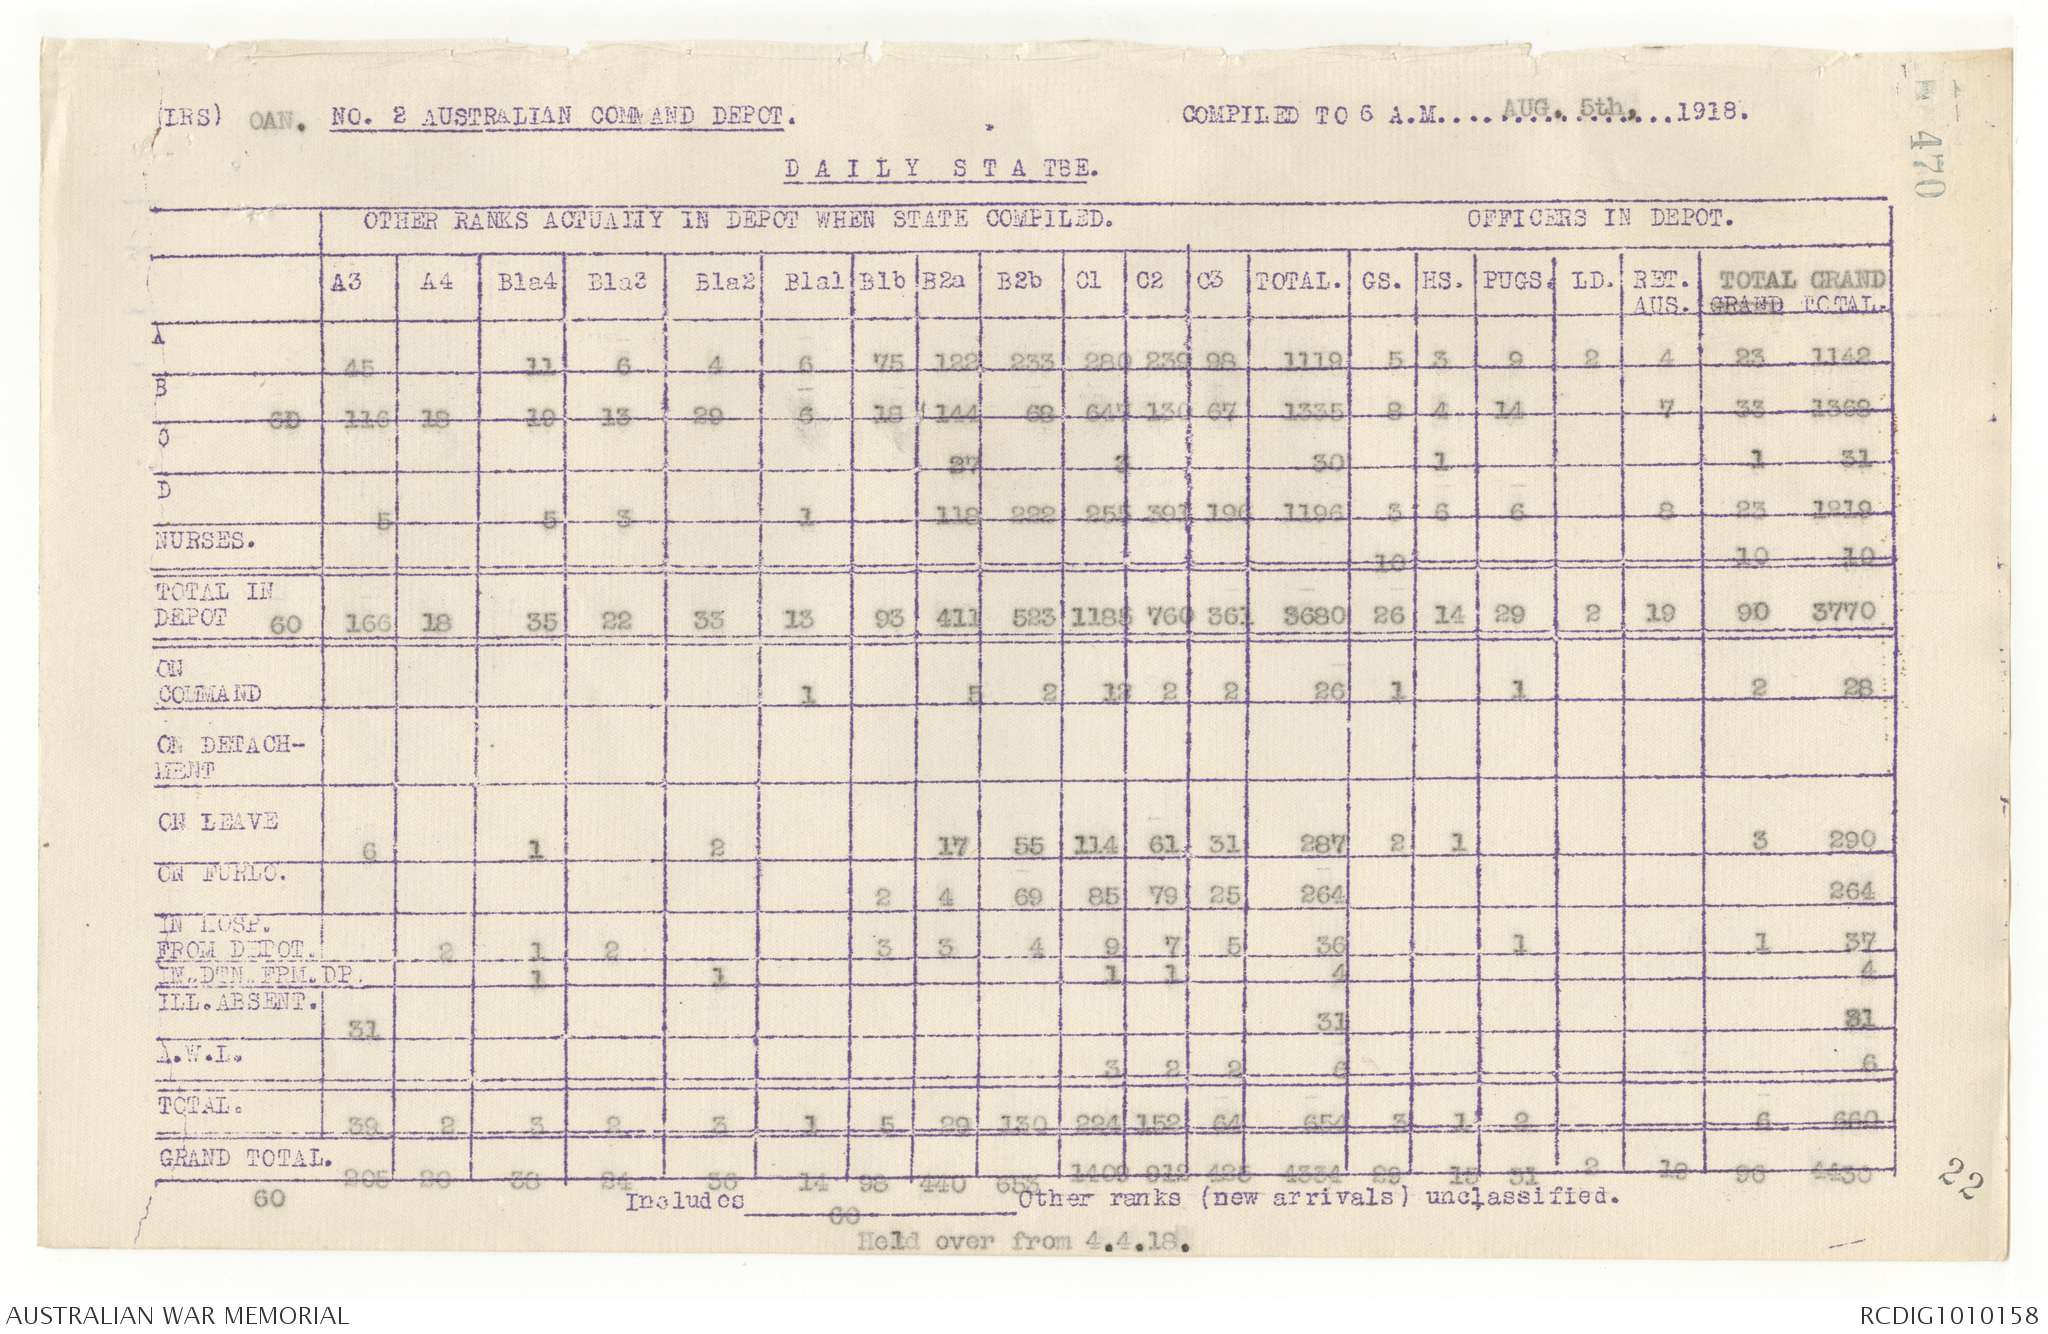 (LRS) OAN. NO. 2 AUSTRALIAN COMMAND DEPOT. COMPILED TO 6 A.M................AUG. 5th, 1918.
470
DAILY STATE.
OTHER RANKS ACTUALLY IN DEPOT WHEN STATE COMPILED. OFFICERS IN DEPOT.
A3 A4 B1a4 B1a3 B1a2 B1a1 B1b B2a B2b C1 C2 C3 TOTAL. GS. HS. PUGS. LD. RET. AUS. TOTAL GRAND
GRAND TOTAL.
A 45 11 6 4 6 75 122 233 280 239 98 1119 5 3 9 2 4 23 1142
B 60 116 18 19 13 29 6 18 144 68 647 130 67 1335 8 4 14 7 33 1368
C 27 3 30 1 1 31
D 5 5 3 1 118 222 255 391 196 1196 3 6 6 8 23 1219
NURSES. 10 10 10
TOTAL IN
DEPOT 60 166 18 35 22 33 13 93 411 523 1185 760 361 3680 26 14 29 2 19 90 3770
ON
COMMAND 1 5 2 12 2 2 26 1 1 2 28
ON DETACH-
MENT
ON LEAVE 6 1 2 17 55 114 61 31 287 2 1 3 290
ON FURLO. 2 4 69 85 79 25 264 264
IN HOSP.
FROM DEPOT. 2 1 2 3 3 4 9 7 5 36 1 1 37
IN.DTN.FRM.DP. 1 1 1 1 4 4
ILL.ABSENT. 31 31 31
A.W.L. 3 2 2 6 6
TOTAL. 39 2 3 2 3 1 5 29 130 224 152 64 654 3 1 2 6 660
GRAND TOTAL. 205 20 38 24 36 14 98 440 653 1409 912 425 4334 29 15 31 2 19 96 4430
60 Includes 60 Other ranks (new arrivals) unclassified.
Held over from 4.4.18.
22
AUSTRALIAN WAR MEMORIAL RCDIG1010158